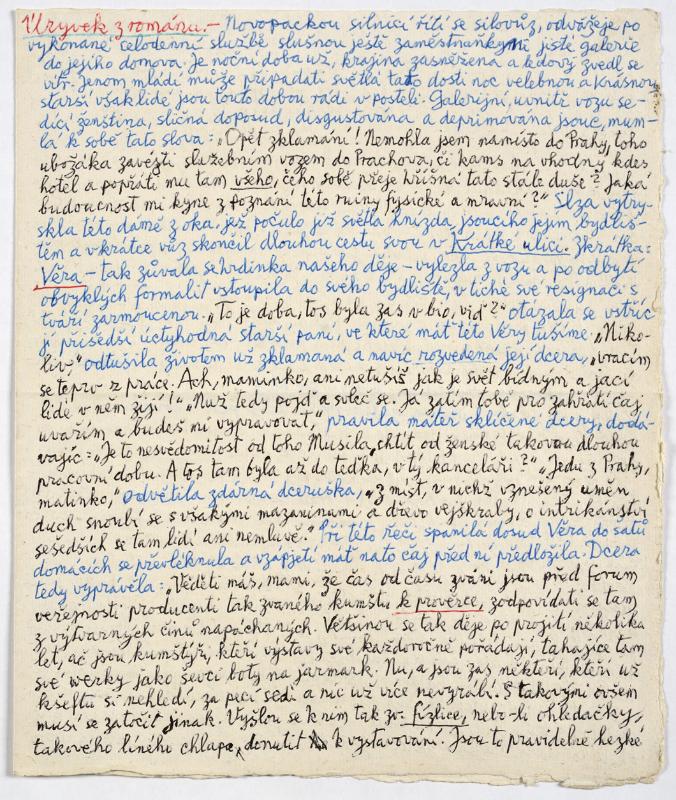 Úryvek z románu. – Novopackou silnicí řítí se silovůz, odvážeje po
vykonané celodenní službě slušnou ještě zaměstnaňkyni jisté galerie
do jejího domova. Je noční doba už, krajina zasněžena a ledový zvedl se
vítr. Jenom mládí může připadati světlá tato dosti noc velebnou a krásnou
starší však lidé jsou touto dobou rádi v posteli. Galerijní, uvnitř vozu se-
dící ženština, sličná doposud, disgustována a deprimována jsouc, mum-
lá k sobě tato slova: „Opět zklamání! Nemohla jsem namísto do Prahy, toho
ubožáka zavézti služebním vozem do Prachova, či kams na vhodný kdes
hotel a popřáti mu tam všeho, čeho sobě přeje hříšná tato stále duše? Jaká
budoucnost mi kyne z poznání této ruiny fysické a mravní?" Slza vytry-
skla této dámě z oka, jež počulo již světla hnízda, jsoucího jejím bydliš-
těm a vkrátce vůz skončil dlouhou cestu svou v Krátké ulici. Zkrátka:
Věra – tak zůvala se hrdinka našeho děje – vylezla z vozu a po odbytí
obvyklých formalit vstoupila do svého bydliště, v tiché své resignaci s
tváří zarmoucenou. „To je doba, tos byla zas v bio, viď?" otázala se vstříc
jí přišedší úctyhodná starší paní, ve které máť této Věry tušíme. „Niko-
liv" odtušila životem už zklamaná a navíc rozvedená její dcera, „vracím
se teprv z práce. Ach, maminko, ani netušíš jak je svět bídným a jací
lidé v něm žijí!" „Nuž tedy pojď a svleč se. Já zatím tobě pro zahřátí čaj
uvařím a budeš mi vypravovat," pravila mateř sklíčené dcery, dodá-
vajíc: „Je to nesvědomitost od toho Musila, chtít od ženské takovou dlouhou
pracovní dobu. A tos tam byla až do teďka, v tý kanceláři?" „Jedu z Prahy,
matinko," odvětila zdárná dceruška, „z míst, v nichž vznešený uměn
duch snoubí se s všakými mazaninami a dřevo vejškraby, o intrikánství
sešedších se tam lidí ani nemluvě." Při této řeči spanilá dosud Věra do šatů
domácích se převléknula a vzápjetí máť na to čaj před ni předložila. Dcera
tedy vyprávěla: „Věděti máš, mami, že čas od času zváni jsou před forum
veřejnosti producenti tak zvaného kumštu k prověrce, zodpovídati se tam
z výtvarných činů napáchaných. Většinou se tak děje po projití několika
let, ač jsou kumštýři, kteří výstavy své každoročně pořádají, tahajíce tam
své werky jako ševci boty na jarmark. Nu, a jsou zas někteří, kteří už
kšeftu si nehledí, za pecí sedí a nic už více nevyrábí. S takovými ovšem
musí se zatočit jinak. Vyšlou se k nim tak zv. fízlice, nebo-li ohledačky,
takového líného chlapa donutit k vystavování. Jsou to pravidelně hezké